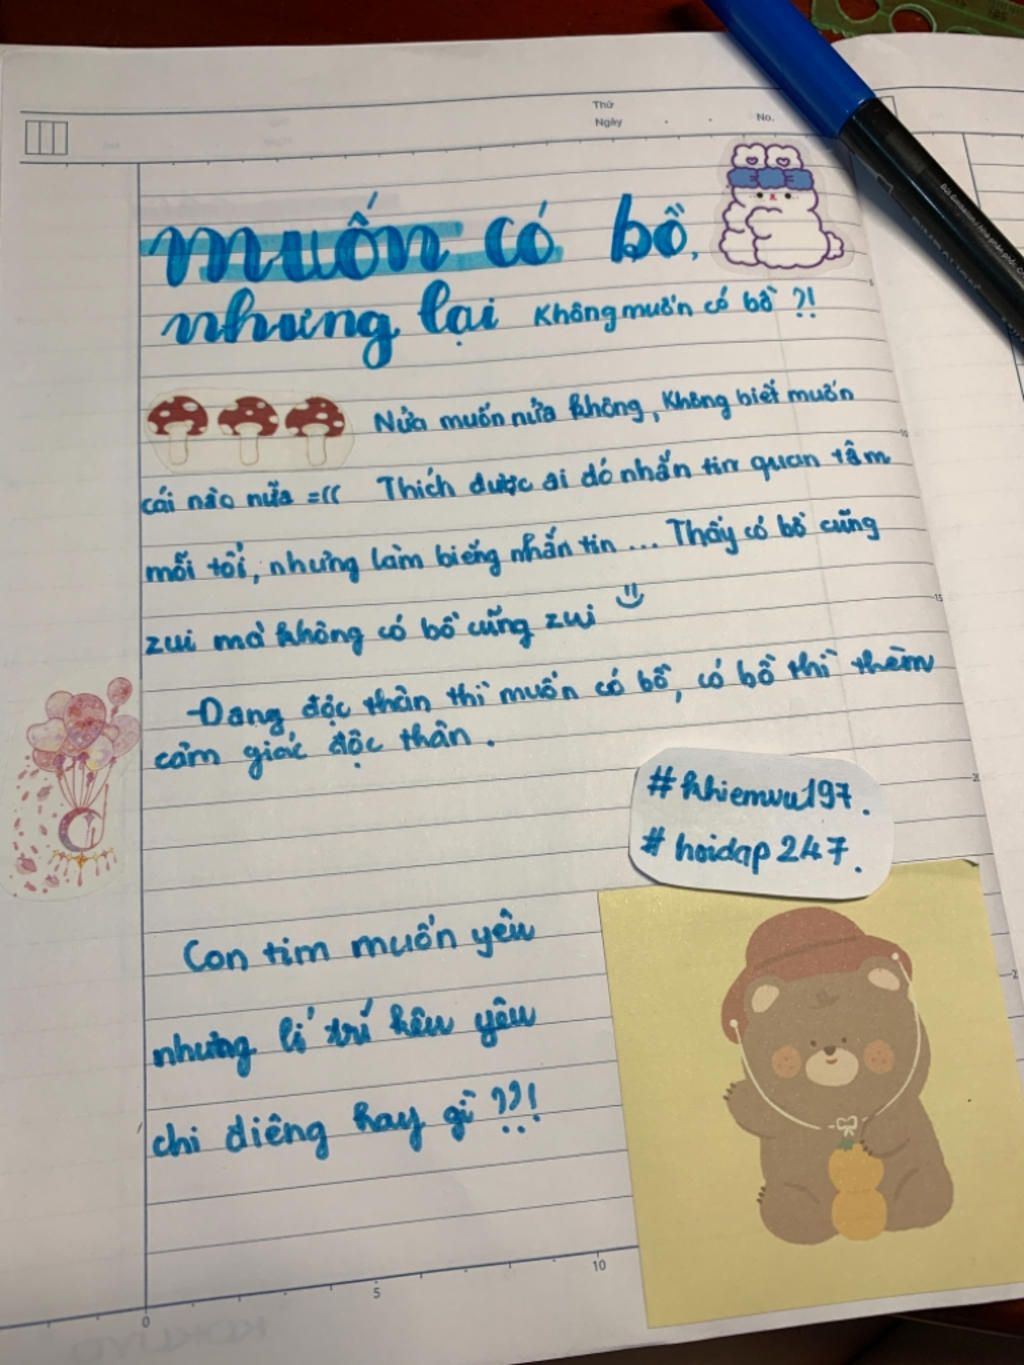 Thứ
Ngày
No.
muốn có bồ,
nhưng lại không muốn có bồ ?!
Nửa muốn nửa không, không biết muốn
cái nào nữa =(( Thích được ai đó nhắn tin quan tâm
mỗi tối, nhưng làm biếng nhắn tin ... Thấy có bồ cũng
zui mà không có bồ cũng zui
Đang độc thân thì muốn có bồ, có bồ thì thèm
cảm giác độc thân.
#nhiemvu197.
#hoidap247.
Con tim muốn yêu
nhưng lí trí kêu yêu
chi điêng hay gì ??!
5
10
15
20
0
5
10